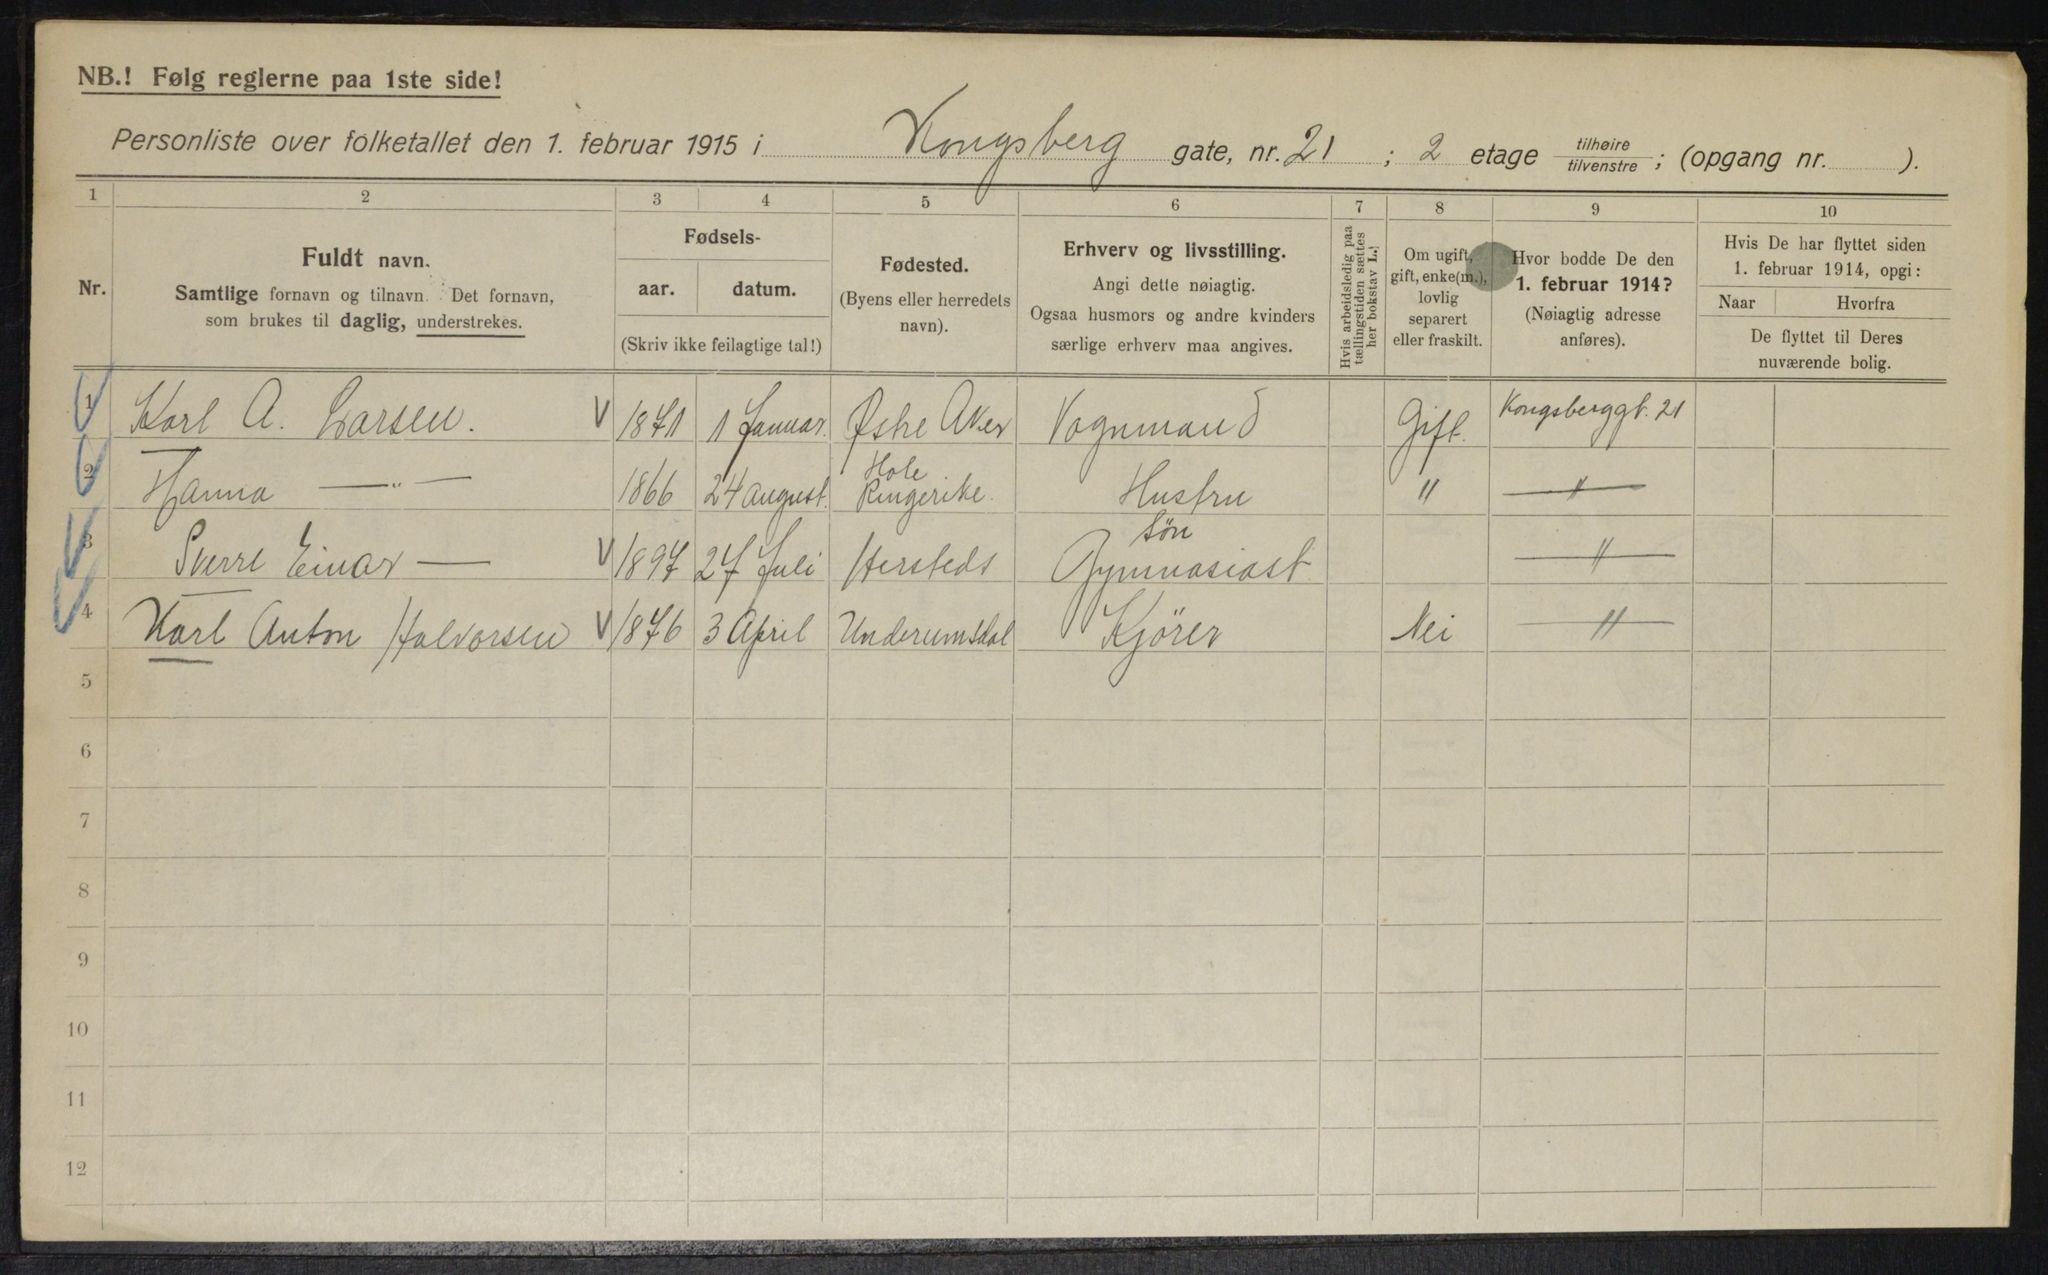 NB.! Følg reglerne paa 1ste side!
Personliste over folketallet den 1. februar 1915 i Kongsberg gate, nr. 21 ; 2 etage tilhøire / tilvenstre ; (opgang nr. ).
1 2 3 4 5 6 7 8 9 10
Nr.
Fuldt navn.
Samtlige fornavn og tilnavn. Det fornavn,
som brukes til daglig, understrekes.
Fødsels-
aar. datum.
(Skriv ikke feilagtige tal!)
Fødested.
(Byens eller herredets
navn).
Erhverv og livsstilling.
Angi dette nøiagtig.
Ogsaa husmors og andre kvinders
særlige erhverv maa angives.
Hvis arbeidsledig paa
tællingstiden sættes
her bokstav L.
Om ugift,
gift, enke(m.),
lovlig
separert
eller fraskilt.
Hvor bodde De den
1. februar 1914?
(Nøiagtig adresse
anføres).
Hvis De har flyttet siden
1. februar 1914, opgi:
Naar Hvorfra
De flyttet til Deres
nuværende bolig.
1 Karl A. Larsen. V 1871 1 Januar. Østre Aker Vognmand Gift. Kongsberggt. 21
2 Hanna —„— 1866 24 august. Hole Ringerike. Hustru " — " —
3 Sverre Einar — V 1897 27 Juli Hersteds Søn Gymnasiast — " —
4 Karl Anton Halvorsen V 1876 3 April Underumsdal Kjörer Nei — " —
5
6
7
8
9
10
11
12